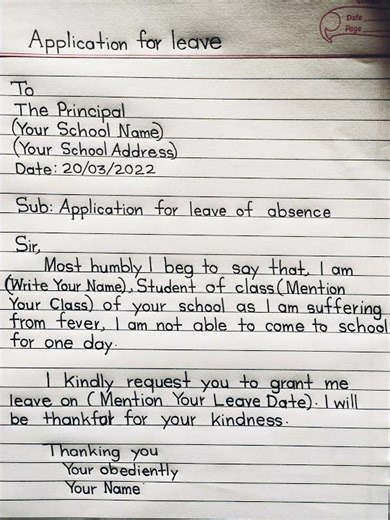 Date
Page
Application for leave
To
The Principal
(Your School Name)
(Your School Address)
Date: 20/03/2022
Sub: Application for leave of absence
Sir,
Most humbly I beg to say that, I am
(Write Your Name), Student of class (Mention
Your Class) of your school as I am suffering
from fever, I am not able to come to school
for one day.
I kindly request you to grant me
leave on ( Mention Your Leave Date). I will
be thankful for your kindness.
Thanking you
Your obediently
Your Name